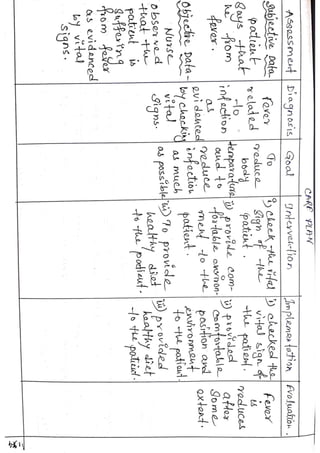 CARE PLAN
Assessment
Subjective Data
patient
says that
he from
fever.
Objective Data-
Nurse
observed
that the
patient is
suffering
from fever
as evidenced
by vital
signs.
Diagnosis
Fever
related
to
infection
as
evidenced
by checking
vital
signs.
Goal
To
reduce
body
temparature
and to
reduce
infection
as much
as possible
Intervention
i) check the vital
sign of the
patient.
ii) provide com-
fortable environ-
ment to the
patient.
iii) To provide
healthy diet
to the patient.
Implementation
i) checked the
vital sign of
the patient.
ii) provided
comfortable
position and
environment
to the patient.
iii) provided
healthy diet
to the patient.
Evaluation.
Fever
is
reduces
after
some
extent.